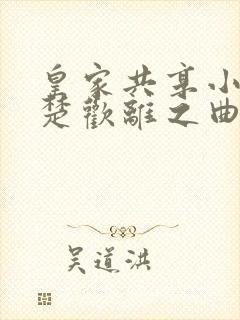 皇家共享小
楚歡離之曲
吴道洪